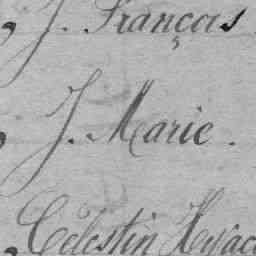 , J. François
, J. Marie.
, Célestin Hyac